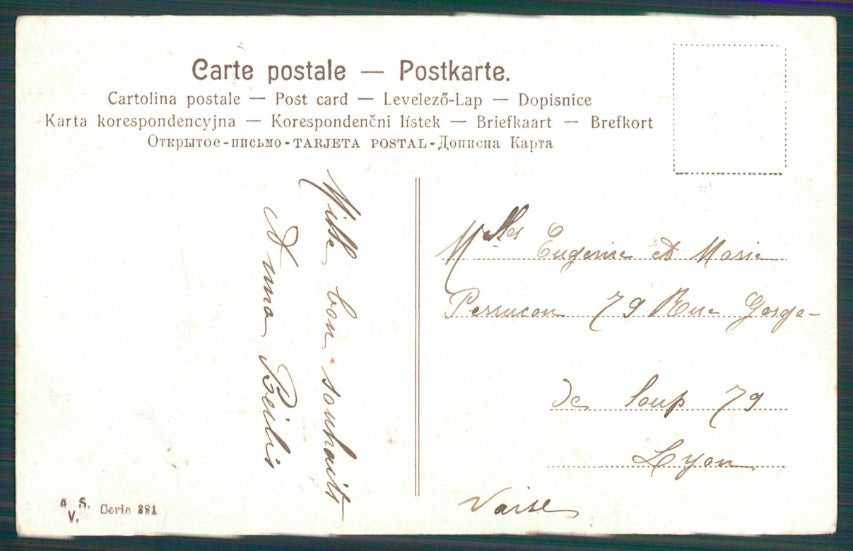 Carte postale — Postkarte.
Cartolina postale — Post card — Levelező-Lap — Dopisnice
Karta korespondencyjna — Korespondenčni lístek — Briefkaart — Brefkort
Открытое-письмо-TARJETA POSTAL-Дописна Карта
Mille bon souhaits
Anna
Mlles Eugenie et Marie
79 Rue Gorge
de loup 79
Lyon
Vaise
A. S.
V. Serie 281